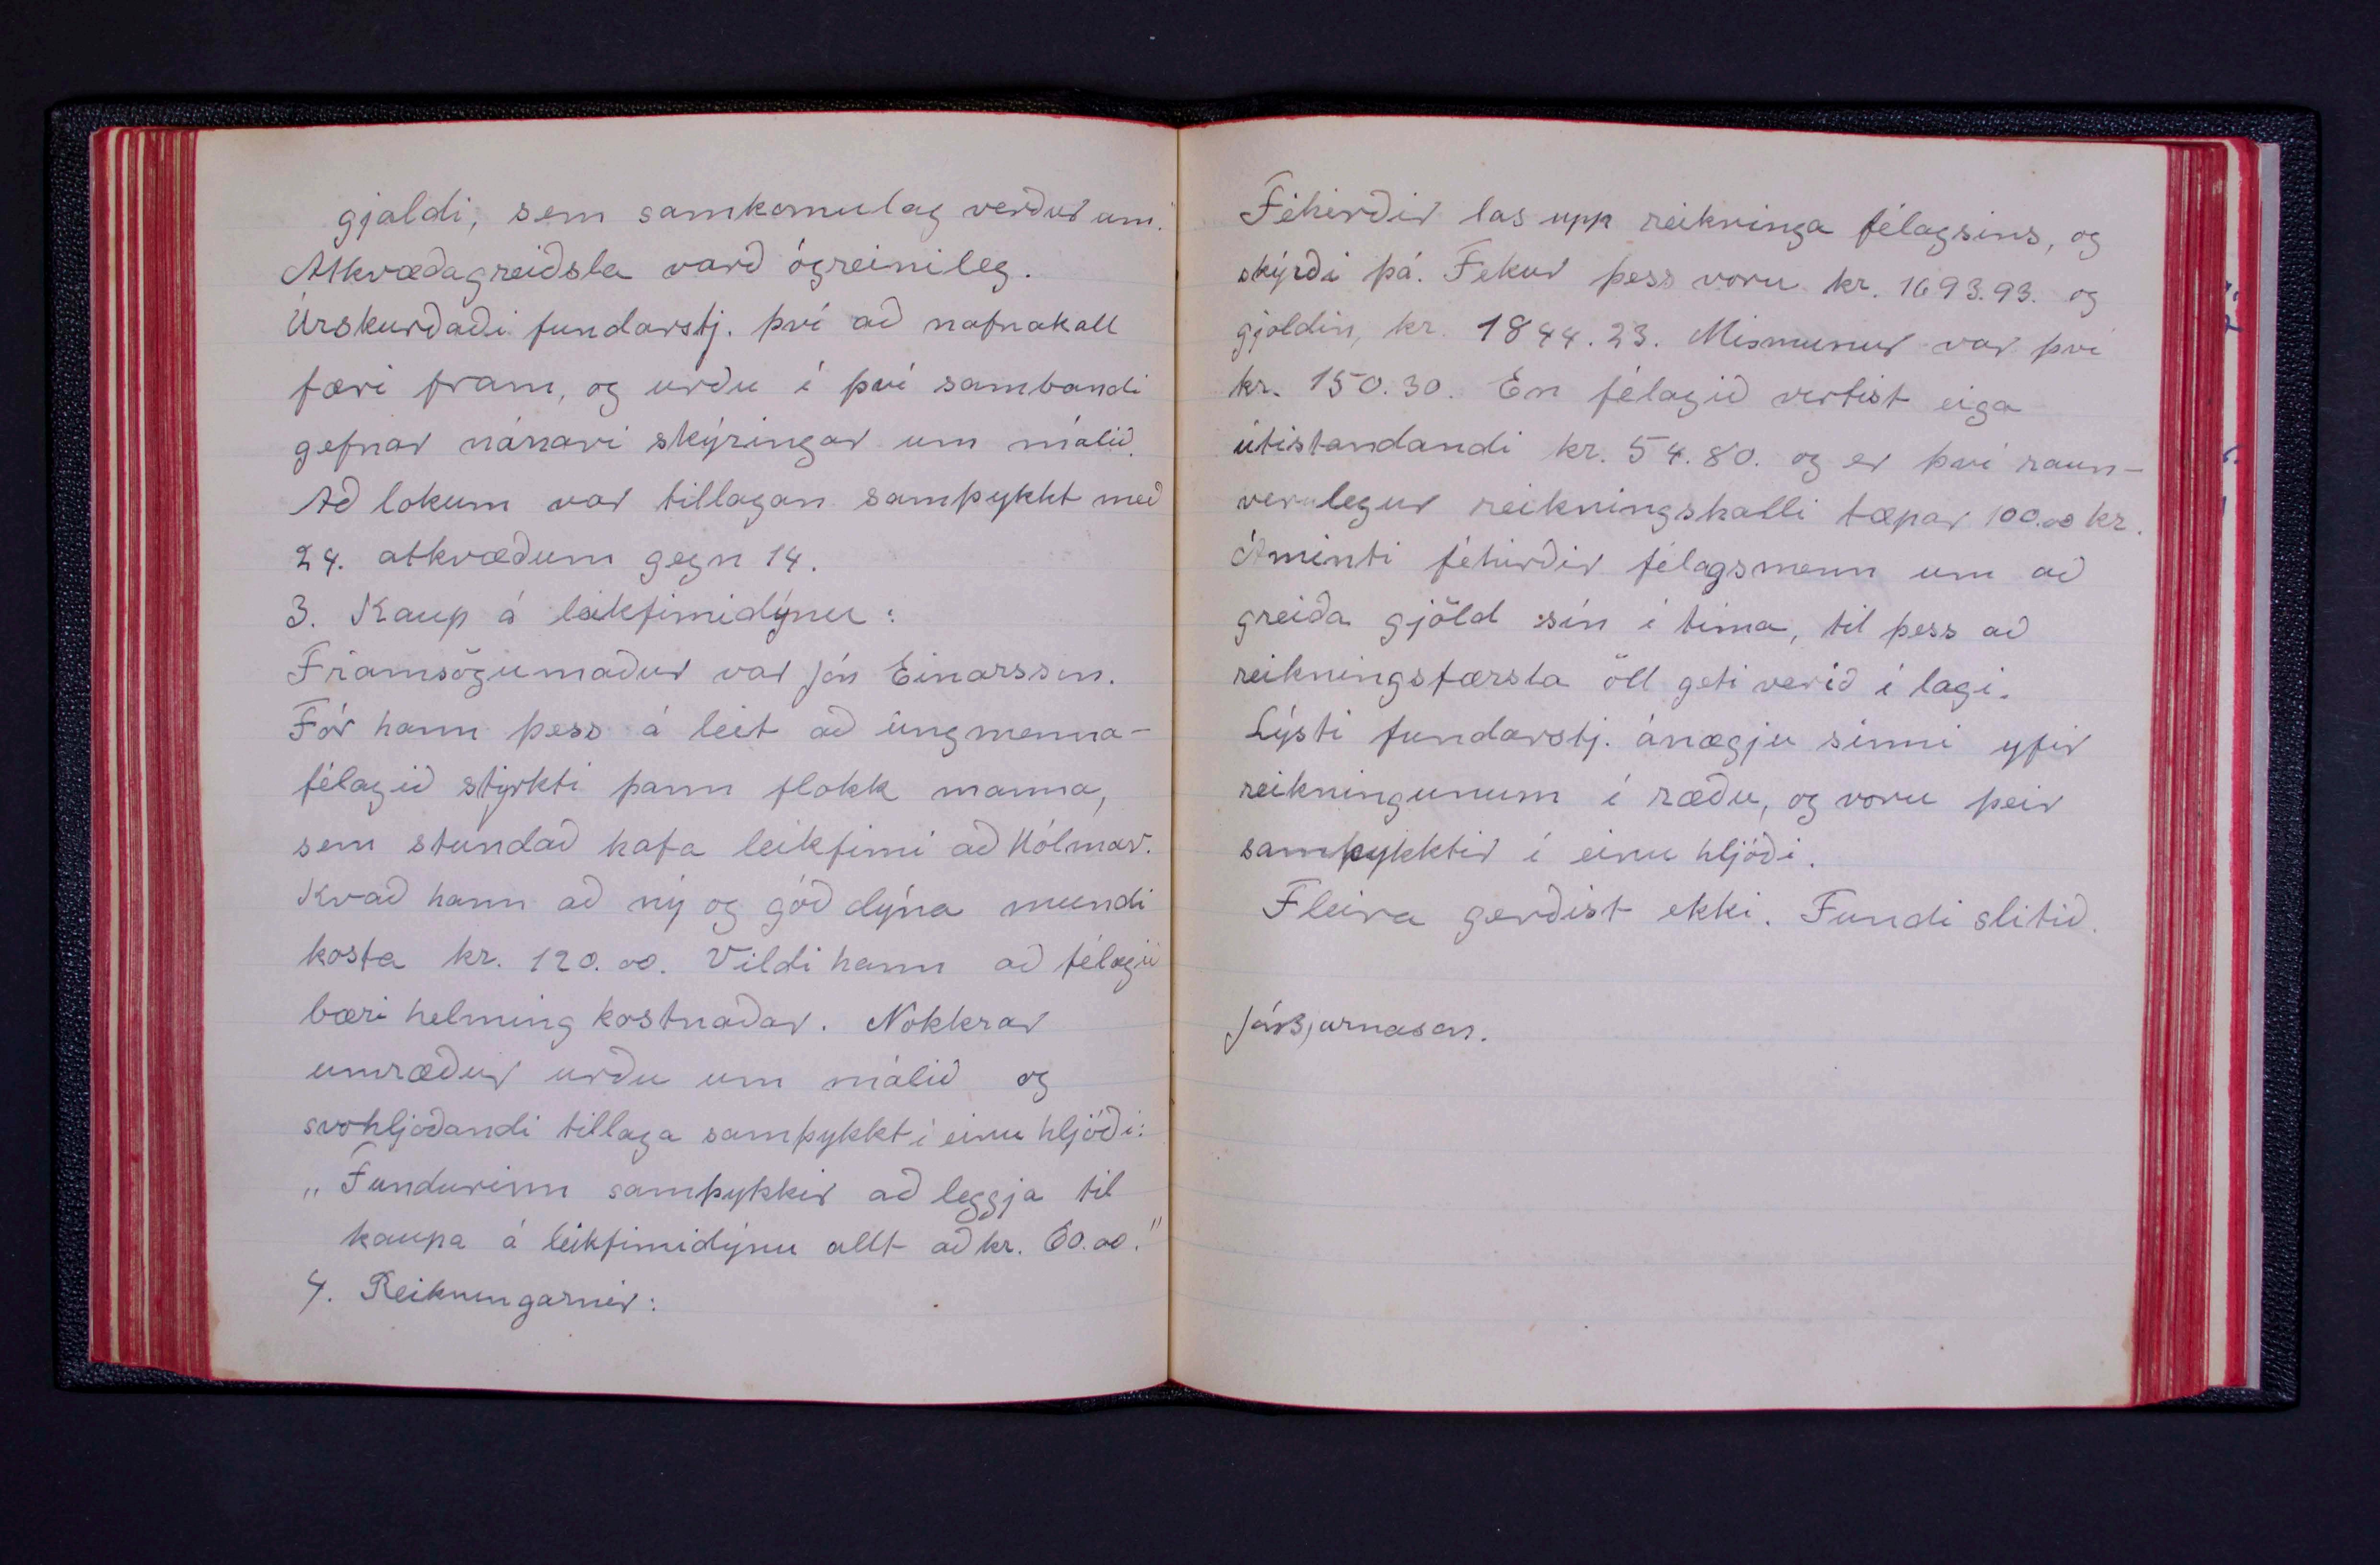 gjaldi, sem samkomulag verður um."
Atkvæðagreiðsla varð ógreinileg.
Úrskurðaði fundarstj. því að nafnakall
færi fram, og urðu í því sambandi
gefnar nánari skýringar um málið.
Að lokum var tillagan samþykkt með
24. atkvæðum gegn 14.
3. Kaup á leikfimidýnu:
Framsögumaður var Jón Einarsson.
Fór hann þess á leit að ungmenna-
félagið styrkti þann flokk manna,
sem stundað hafa leikfimi að Hólmar.
Kvað hann að ný og góð dýna mundi
kosta kr. 120.00. Vildi hann að félagið
bæri helming kostnaðar. Nokkrar
umræður urðu um málið og
svohljóðandi tillaga samþykkt í einu hljóði:
„Fundurinn samþykkir að leggja til
kaupa á leikfimidýnu allt að kr. 60.00."
4. Reikningarnir:
Féhirðir las upp reikninga félagsins, og
skýrði þá. Tekur þess voru kr. 1693.93. og
gjöldin, kr. 1844.23. Mismunur var því
kr. 150.30. En félagið virtist eiga
útistandandi kr. 54.80. og er því raun-
verulegur reikningshalli tæpar 100.00 kr.
Áminti féhirðir félagsmenn um að
greiða gjöld sín í tíma, til þess að
reikningsfærsla öll geti verið í lagi.
Lýsti fundarstj. ánægju sinni yfir
reikningunum í ræðu, og voru þeir
samþykktir í einu hljóði.
Fleira gerðist ekki. Fundi slitið.
Jón Bjarnason.